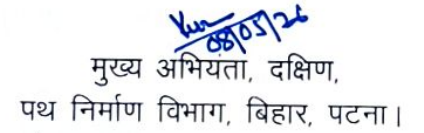 08/05/26
मुख्य अभियंता, दक्षिण,
पथ निर्माण विभाग, बिहार, पटना।